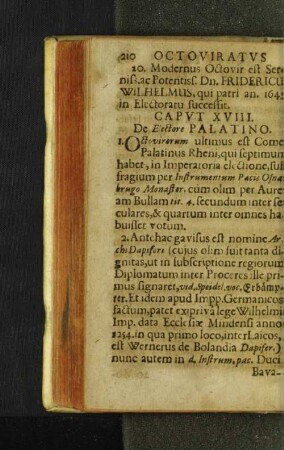 210 OCTOVIRATVS
10. Modernus Octovir est Sere-
niss. ac Potentiss. Dn. FRIDERICUS
WILHELMUS, qui patri an. 1641
in Electoratu successit.
CAPUT XVIII.
De Electore PALATINO.
1. Octovirorum ultimus est Comes
Palatinus Rheni, qui septimum
habet, in Imperatoria electione, suf-
fragium per Instrumentum Pacis Osna-
brugo Monaster. cùm olim per Aure-
am Bullam tit. 4. secundum inter se-
culares, & quartum inter omnes ha-
buisset votum.
2. Antehac gavisus est nomine Ar-
chi Dapiferi (cujus olim fuit tanta di-
gnitas, ut in subscriptione regiorum
Diplomatum inter Proceres ille pri-
mus signaret, vid. Speidel. voc. Erbämp-
ter. Et idem apud Impp. Germanicos
factum, patet ex privilege Wilhelmi
Imp. data Ecclesiæ Mindensi anno
1254. in qua primo loco, inter Laicos,
est Wernerus de Bolandia Dapifer.)
nunc autem in d. Instrum. pac. Duci
Bava-